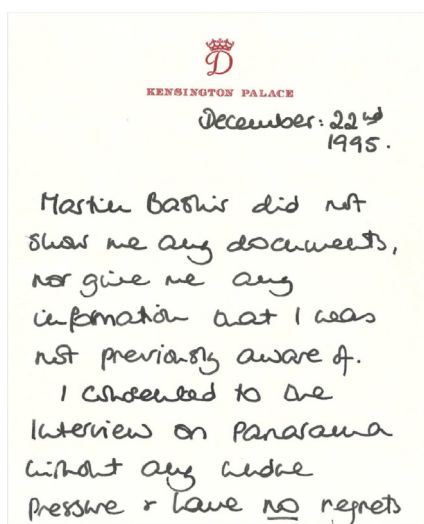 D
KENSINGTON PALACE
December: 22nd
1995.
Martin Bashir did not
show me any documents,
nor give me any
information that I was
not previously aware of.
I consented to the
interview on Panarama
without any undue
pressure & have no regrets